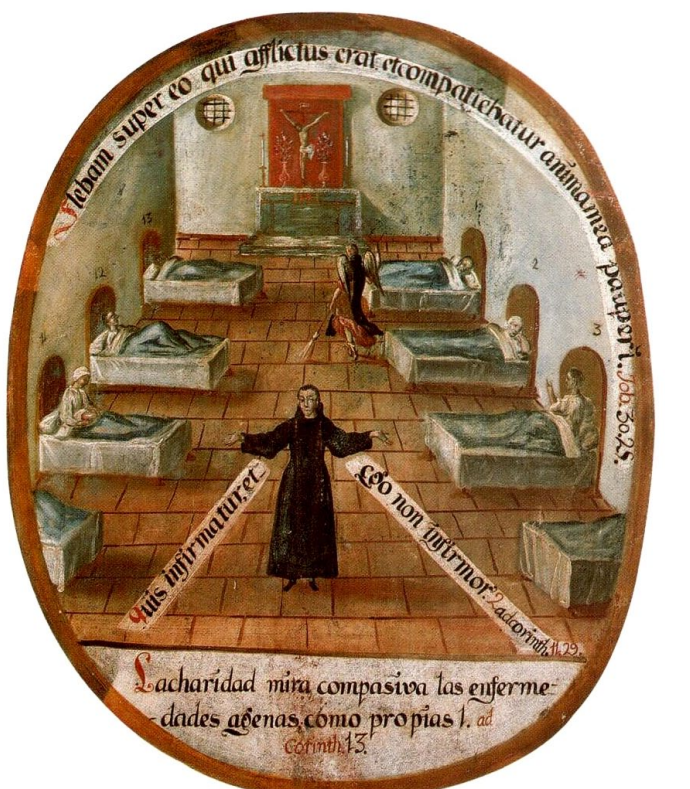 Flebam super eo qui afflictus erat et compatiebatur anima mea pauperi. Job. 30.25.
13
12
2
3
Quis infirmatur, et
Ego non infirmor. 2 ad corinth. 11.29.
La charidad mira compasiva las enferme-
-dades agenas, como propias 1. ad
Corinth. 13.